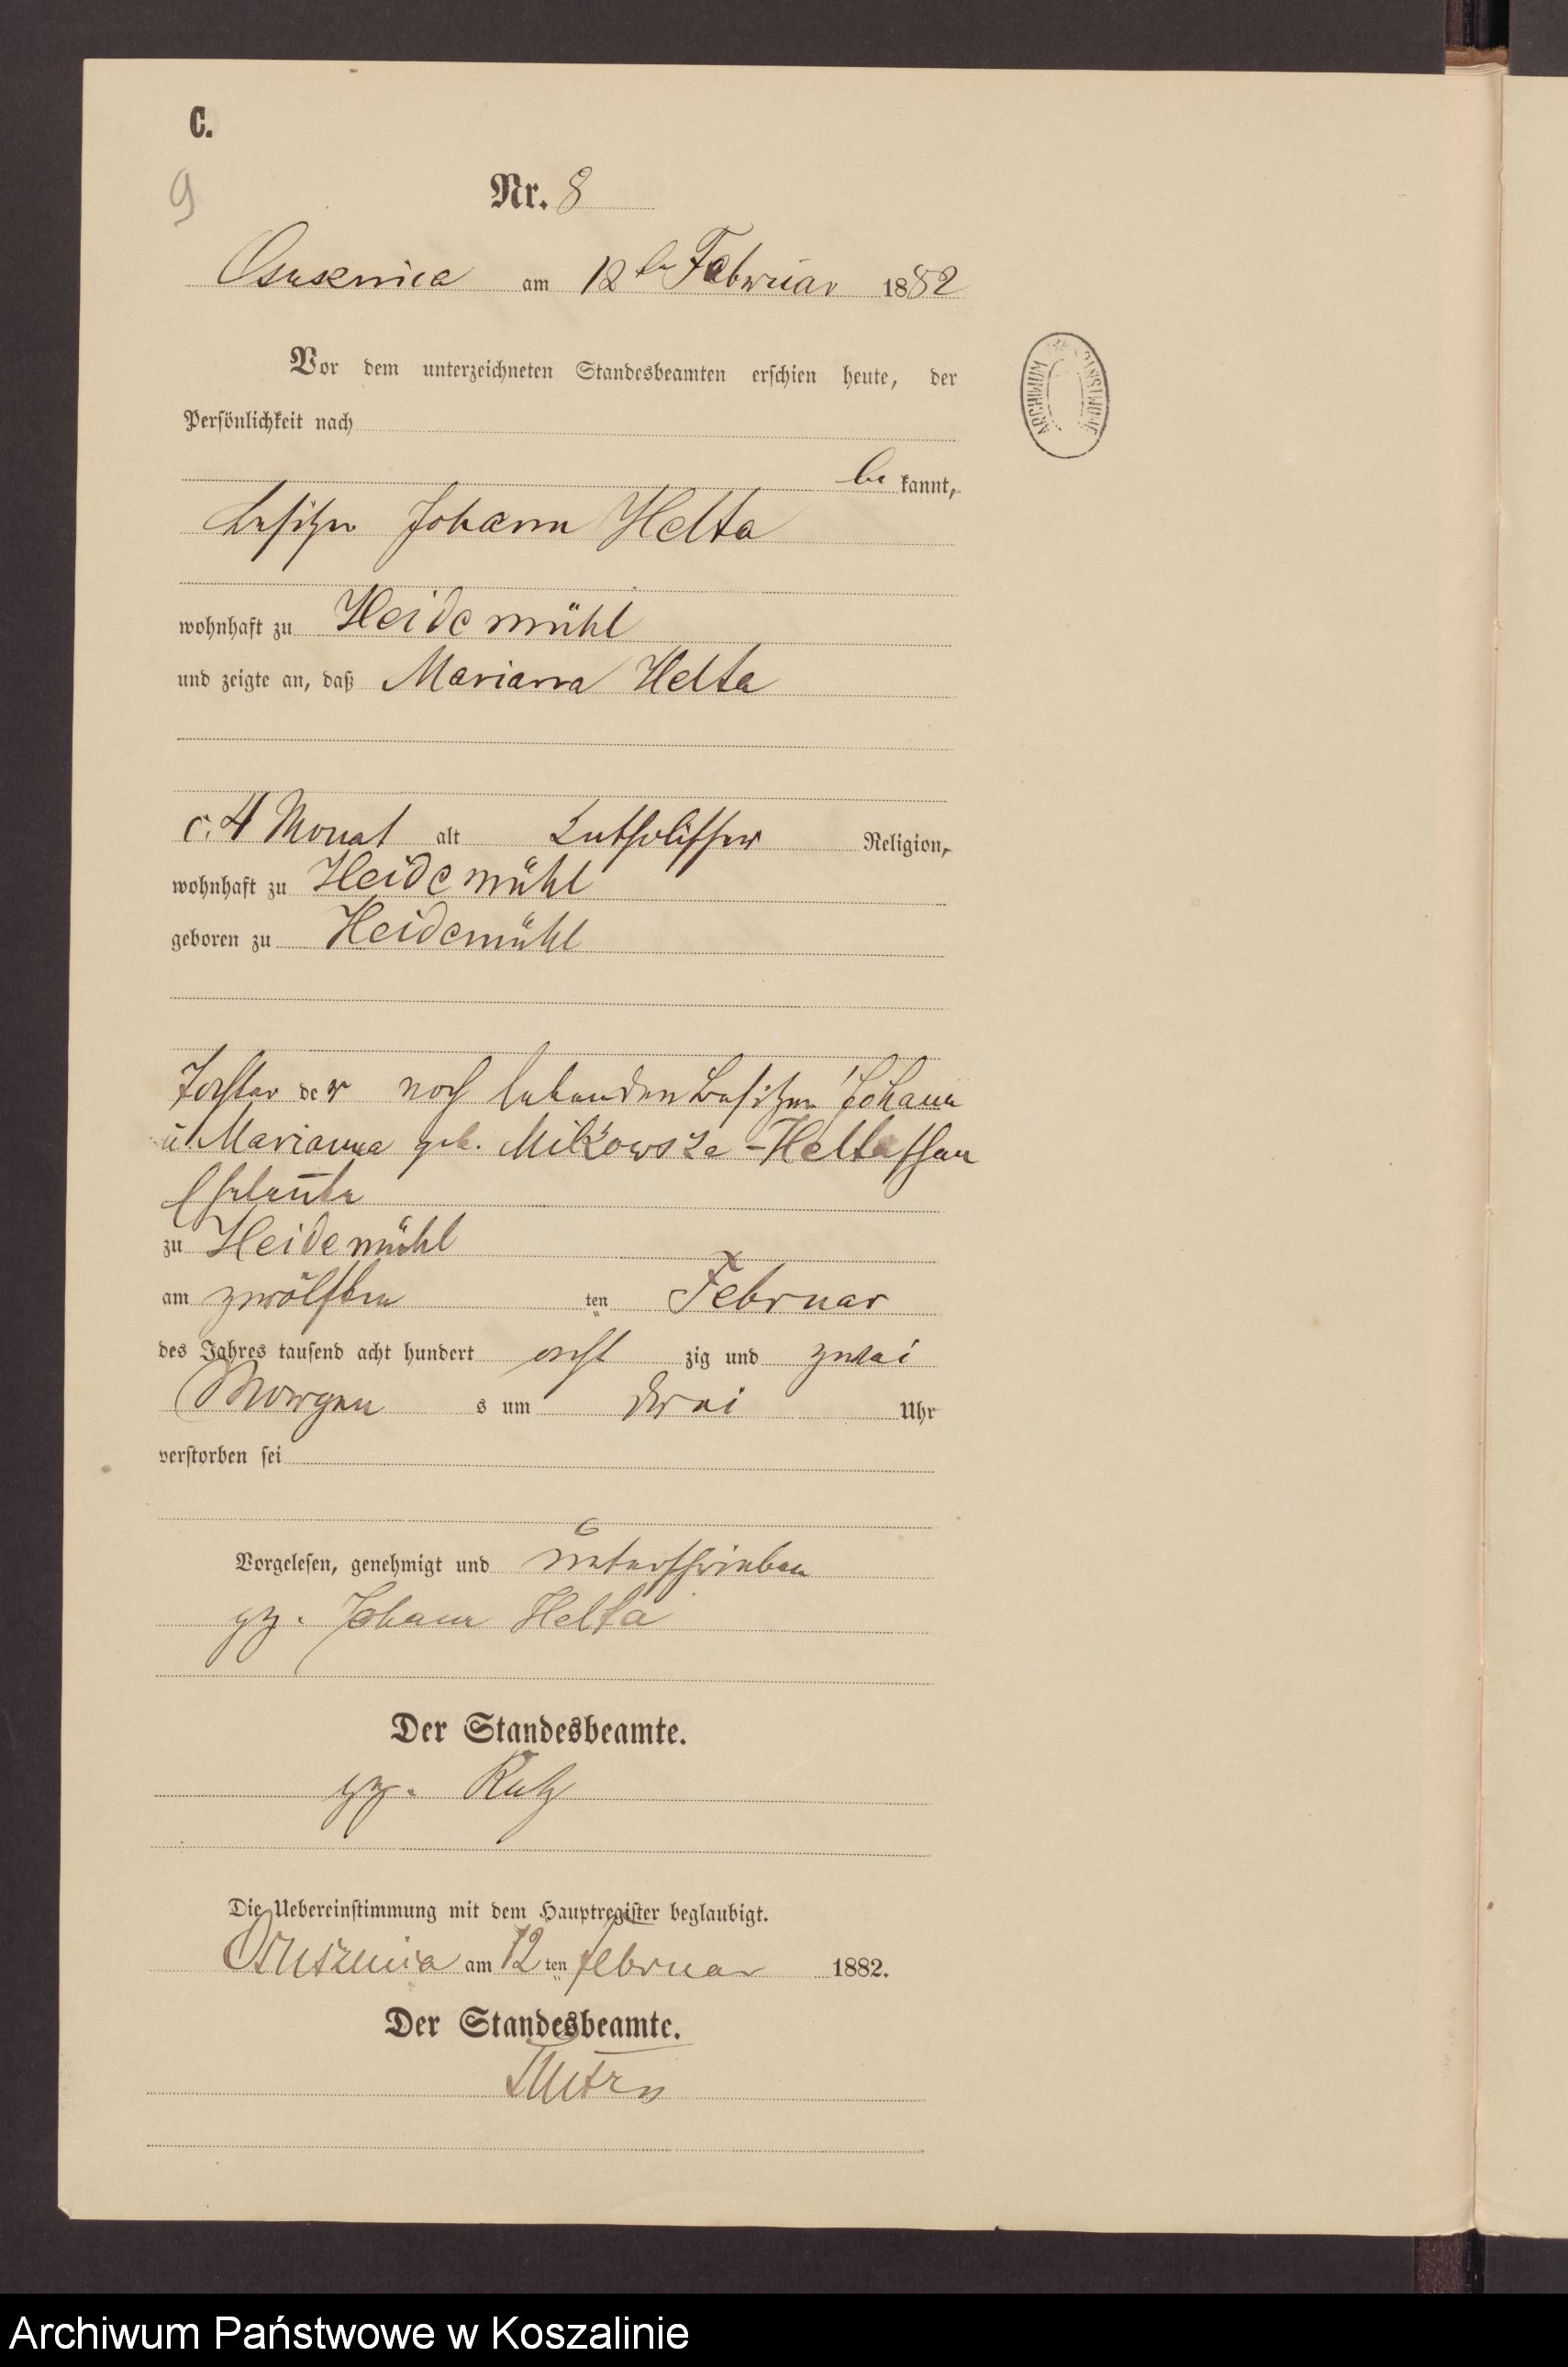 C.
9
Nr. 8
Osusznica am 12ten Februar 1882
Vor dem unterzeichneten Standesbeamten erschien heute, der
Persönlichkeit nach
be kannt,
Besitzer Johann Helta
wohnhaft zu Heidemühl
und zeigte an, daß Marianna Helta
c. 4 Monat alt Katholischer Religion,
wohnhaft zu Heidemühl
geboren zu Heidemühl
Tochter der noch lebenden Besitzer Johann
u Marianna geb. -Heltaschen
Eheleute
zu Heidemühl
am zwölften ten Februar
des Jahres tausend acht hundert acht zig und zwei
Morgen s um drei Uhr
verstorben sei
Vorgelesen, genehmigt und unterschrieben
gz. Johann Helta
Der Standesbeamte.
gz.
Die Uebereinstimmung mit dem Hauptregister beglaubigt.
am 12 ten Februar 1882.
Der Standesbeamte.
ARCHIWUM PAŃSTWOWE
Archiwum Państwowe w Koszalinie